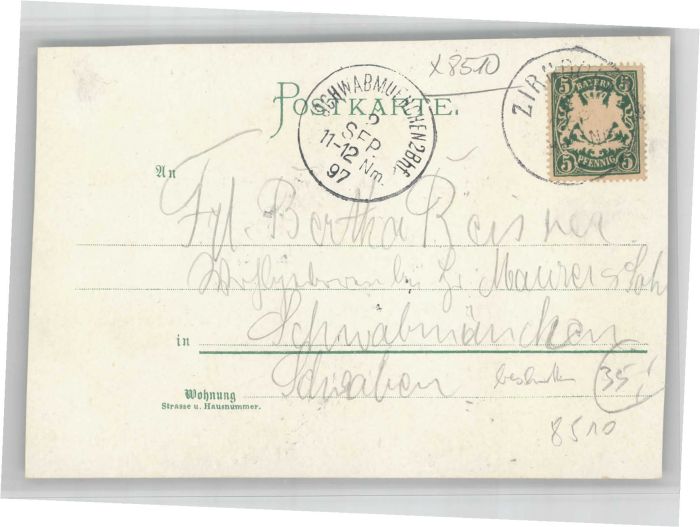 x8510
POSTKARTE.
SCHWABMUENCHEN 2 Bhf
2
SEP
11-12 Nm.
97
ZIRNDO
5 BAYERN 5
5 PFENNIG 5
An
Frl. Bertha Reisner
Maurer's
in Schwabmünchen
Schwaben
35
Wohnung
Strasse u. Hausnummer.
8510